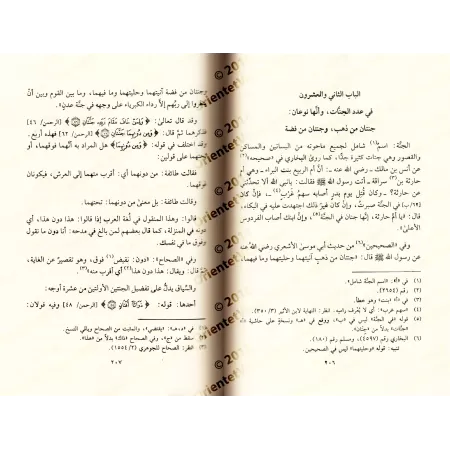 الباب الثاني والعشرون
في عدد الجنَّات، وأنَّها نوعان:
جنتان من ذهب، وجنتان من فضة
الجنَّة: اسمٌ(١) شامل لجميع ماحوته من البساتين والمساكن
والقصور وهي جنات كثيرة جدًّا، كما روى البخاري في «صحيحه»(٢)
عن أنس بن مالك ـ رضي الله عنه ـ: أنَّ أم الربيع بنت البراء ـ وهي أم
حارثة بن(٣) سراقة ـ أتت رسول الله ﷺ فقالت: يانبي الله ألا تحدثُني
عن حارثة؟ ـ وكان قُتِلَ يوم بدرٍ أصابه سهمٌ غَرْبٌ(٤) ـ، فإنْ كانَ
في الجنَّة صبرتُ، وإنْ كان غيرُ ذلك اجتهدت عليه في البكاء،
قال: «يا أمَّ حارثة، إنَّها جنان في الجنَّة(٥)، وإنَّ ابنك أصاب الفردوس
الأعلىٰ».
وفي «الصحيحين»(٦) من حديث أبي موسىٰ الأشعري رضي الله عنه
عن رسول الله ﷺ قال: «جنَّتان من ذهب آنيتهما وحليتهما وما فيهما،
(١) في «أ»: «اسم الجنَّة شامل».
(٢) رقم (٢٦٥٤).
(٣) في «أ»: «بنت» وهو خطأ.
(٤) «سهم غرب»: أي لا يُعرف راميه. انظر: النهاية لابن الأثير (٣/ ٣٥٠).
(٦) البخاري رقم (٤٥٩٧)، ومسلم رقم (١٨٠).
تنبيه: قوله «وحليتهما» ليس في الصحيحين.
٢٠٦
وجنتان من فضة آنيتهما وحليتهما وما فيهما، وما بين القوم وبين أنْ
ينظروا إلى ربِّهم إلاَّ رداء الكبرياء على وجهه في جنَّة عدنٍ».
وقد قال تعالىٰ: ﴿وَلِمَنْ خَافَ مَقَامَ رَبِّهِ جَنَّتَانِ﴾ [الرحمن/ ٤٦]
فذكرهما ثمَّ قال: ﴿وَمِن دُونِهِمَا جَنَّتَانِ﴾ [الرحمن/ ٦٢] فهذه أربع.
وقد اختلف في قوله: ﴿وَمِن دُونِهِمَا﴾ هل المراد به أنَّهما فوقهما، أو
تحتهما على قولين:
فقالت طائفة: من دونهما أي: أقرب منهما إلى العرش، فيكونان
فوقهما.
وقالت طائفة: بل معنىٰ من دونهما: تحتهما.
قالوا: وهذا المنقول في لُغة العرب إذا قالوا: هذا دون هذا، أي
دونه في المنزلة، كما قال بعضهم لمن بالغ في مدحه: أنا دون ما تقول
وفوق ما في نفسك.
وفي «الصحاح»: «دون: نقيض(١) فوق، وهو تقصيرٌ عن الغاية،
ثمَّ قال: ويقال: هذا دون هذا(٢) أي أقرب منه»(٣).
والسِّياق يدلُّ على تفضيل الجنتين الأوليين من عشرة أوجه:
أحدها: قوله: ﴿ذَوَاتَا أَفْنَانٍ﴾ [الرحمن/ ٤٨] وفيه قولان:
(٣) انظر: الصحاح للجوهري (٢/ ١٥٥٤).
٢٠٧